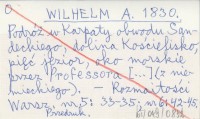 WILHELM A. 1830.
Podróż w Karpaty obwodu Sąn-
deckiego, dolina Kościelisko,
pięć jezior, oko morskie
przez Professora [...] (z nie-
mieckiego). — Rozmaitości
Warsz. nr. 5: 33-35; nr 6: 42-45.